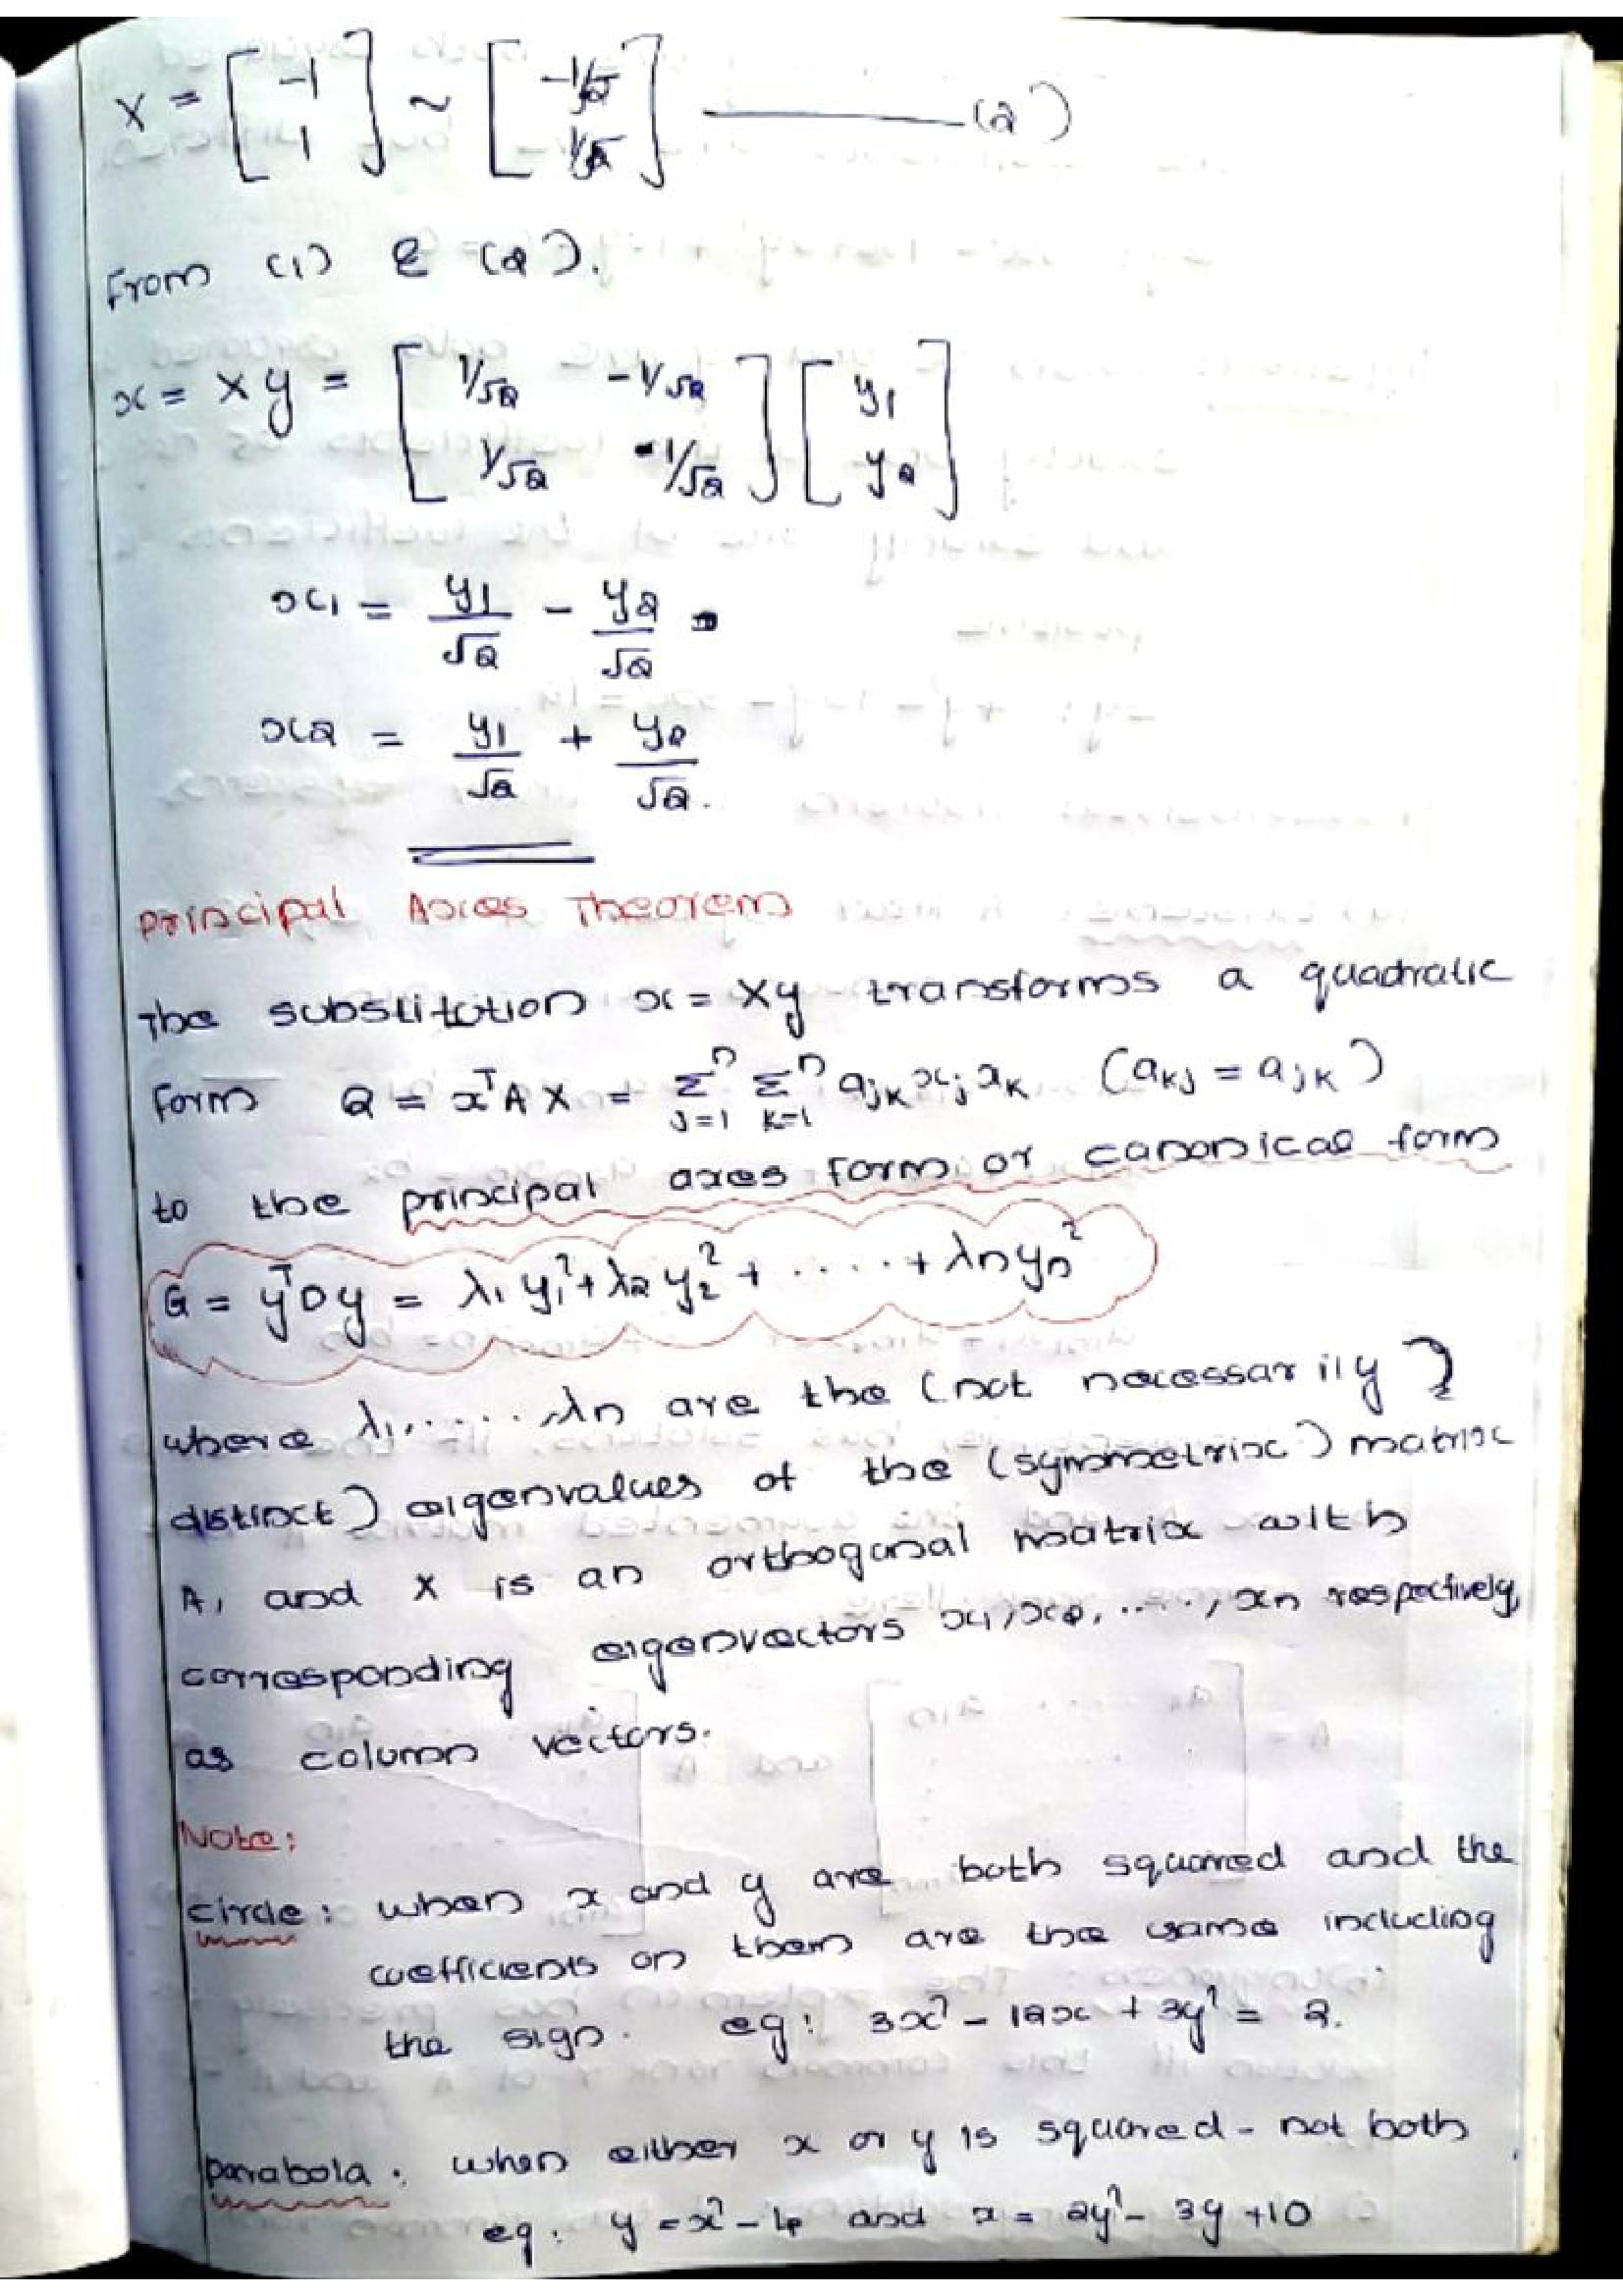 X = [ -1 1 ] ~ [ -1/√2 1/√2 ] ———— (2)
From (1) & (2).
x = Xy = [ 1/√2 -1/√2 ] [ y1 ]
[ 1/√2 -1/√2 ] [ y2 ]
x1 = y1/√2 - y2/√2
x2 = y1/√2 + y2/√2.
Principal Axes Theorem
The substitution x = Xy transforms a quadratic
Form Q = x^T A X = Σ_{j=1}^n Σ_{k=1}^n a_jk x_j x_k (a_kj = a_jk)
to the principal axes form or canonical form
G = y^T D y = λ1 y1² + λ2 y2² + ..... + λn yn²
where λ1, ....., λn are the (not necessarily)
distinct) eigenvalues of the (symmetric) matrix
A, and X is an orthogonal matrix with
corresponding eigenvectors x1, x2, ....., xn respectively,
as column vectors.
Note:
circle: when x and y are both squared and the
coefficients on them are the same including
the sign. eg: 3x² - 12x + 3y² = 2.
parabola: when either x or y is squared - not both
eg: y = x² - 4 and x = 2y² - 3y + 10